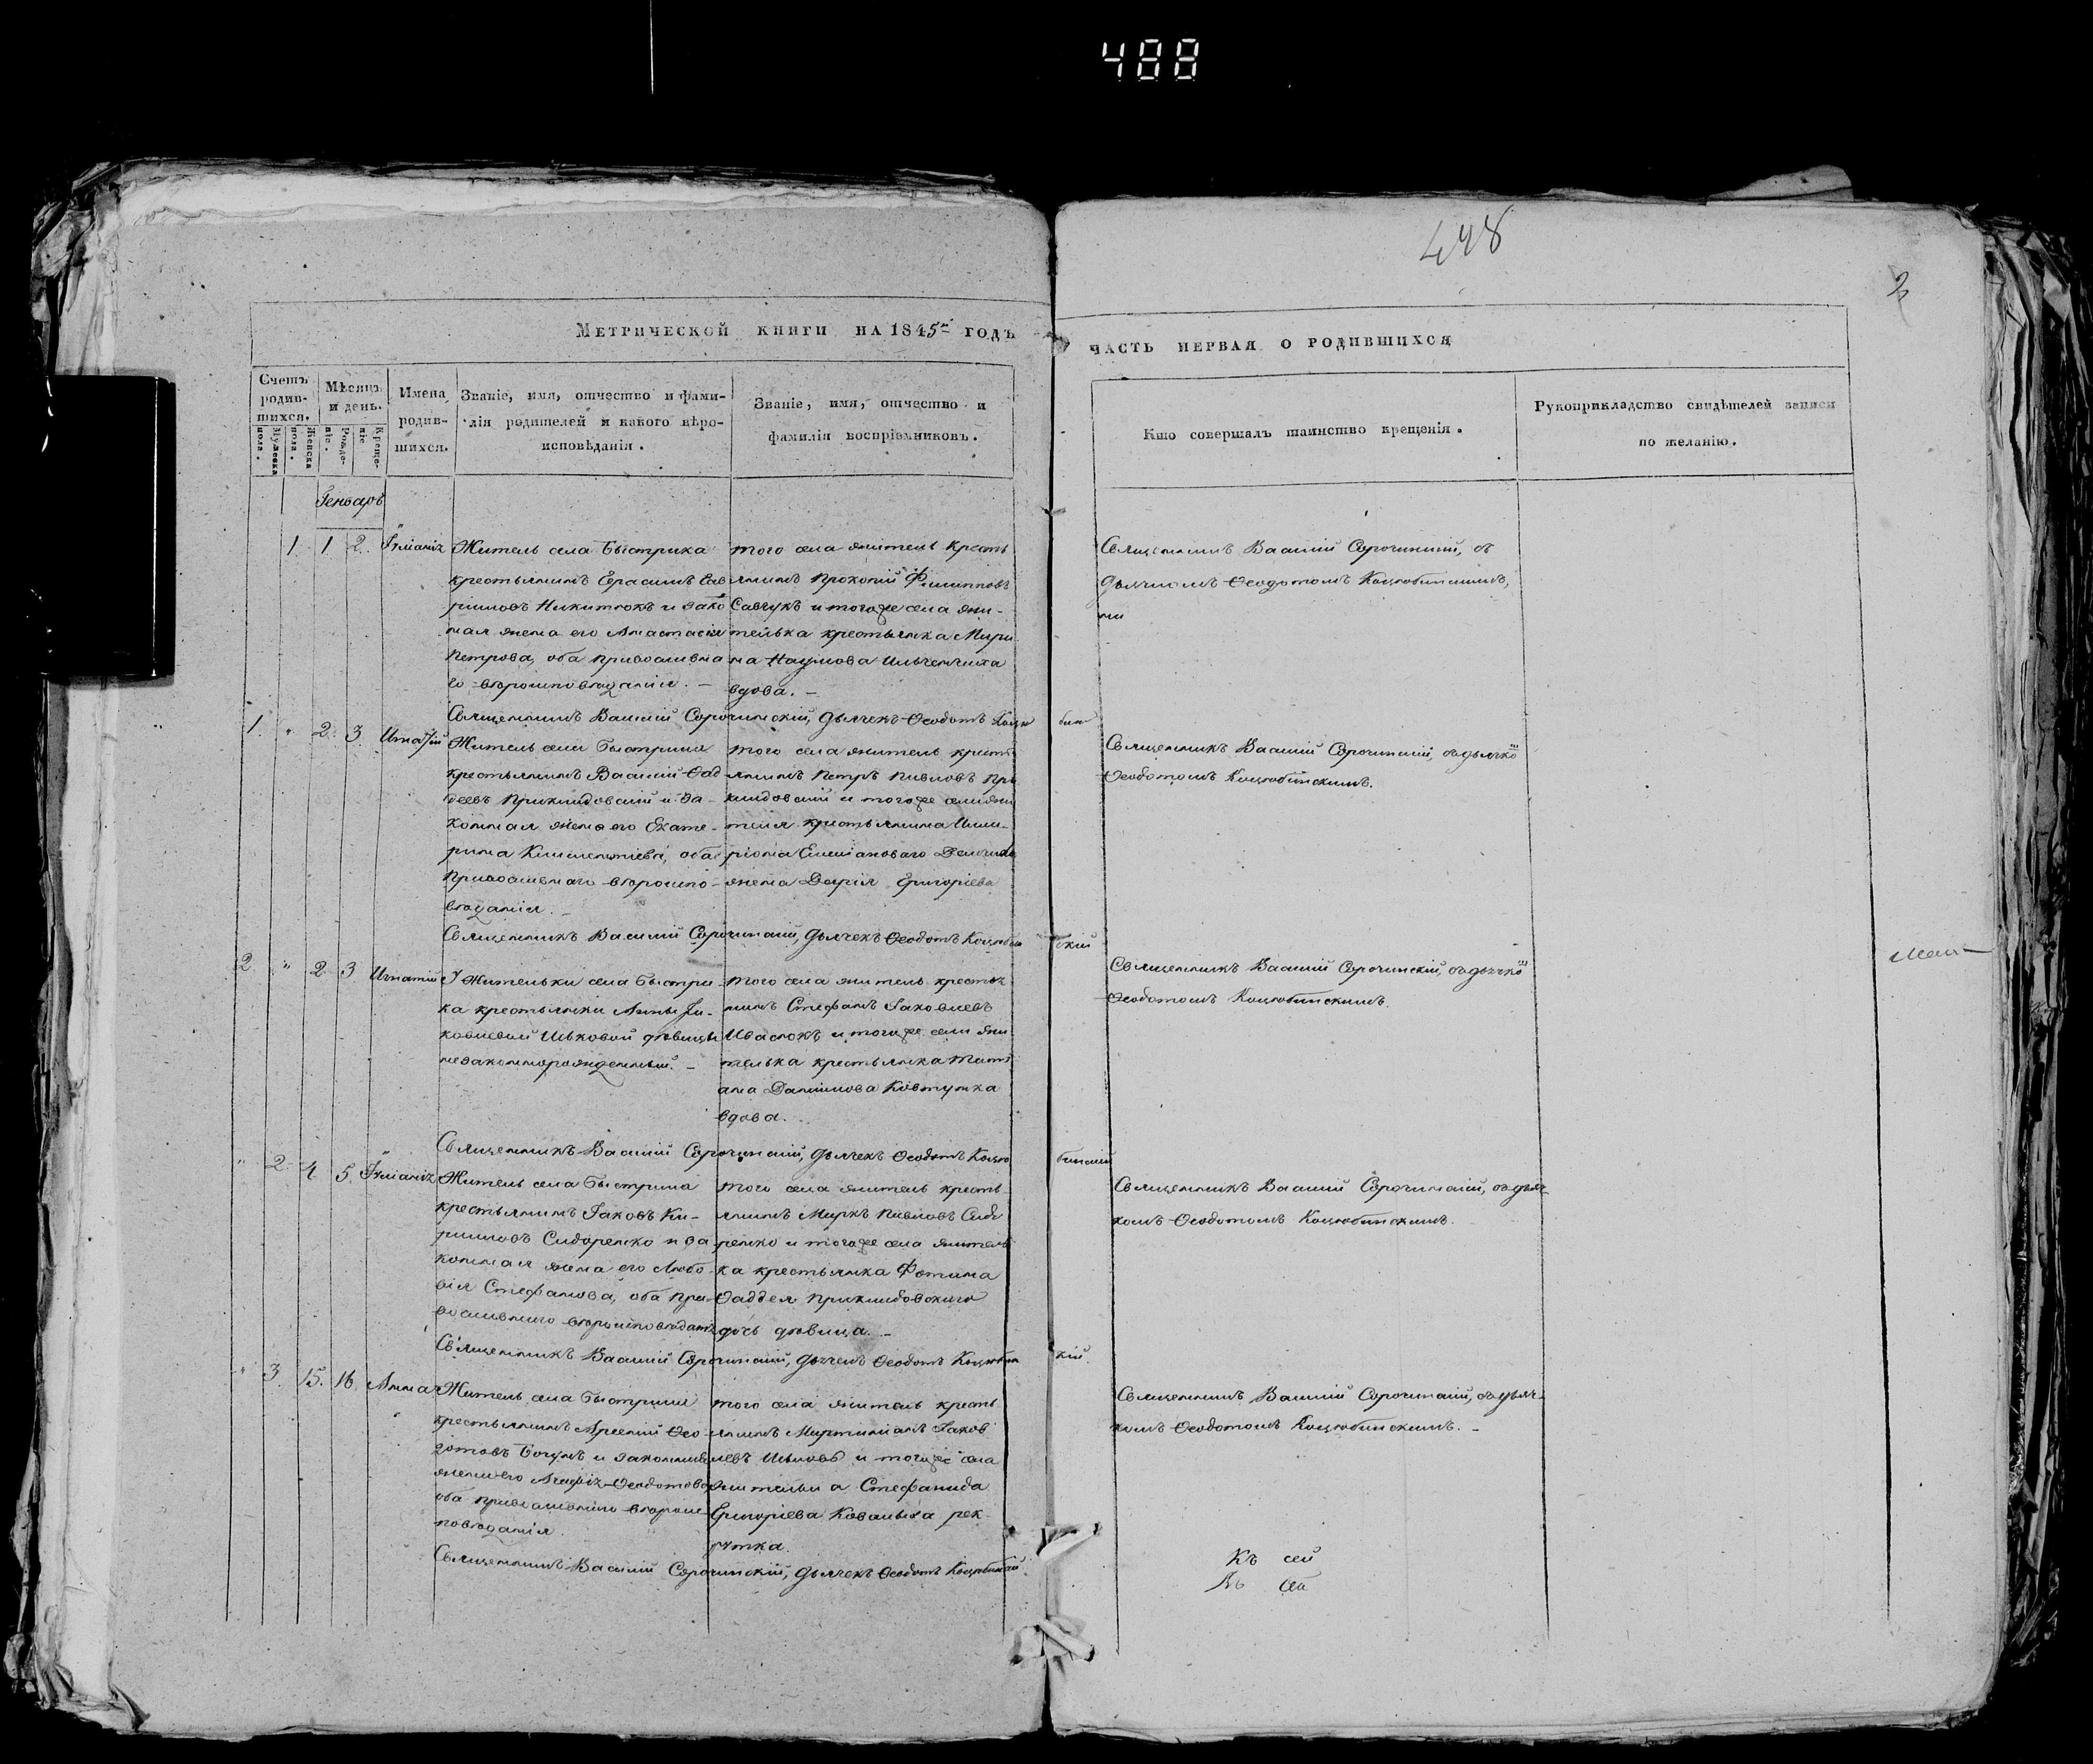 488
448
2
Метрической книги на 1845й годъ
часть первая о родившихся
Счетъ родив-шихся.
Мужеска пола.
Женска пола.
Мѣсяцъ и день.
Рожде-ніе.
Креще-ніе.
Имена родив-шихся.
Званіе, имя, отчество и фами-
лія родителей и какого вѣро-
исповѣданія.
Званіе, имя, отчество и
фамилія воспріемниковъ.
Кто совершалъ таинство крещенія.
Рукоприкладство свидѣтелей записи
по желанію.
Генварь
1. 1. 2. Іуліанія
Житель села Быстрика
крестьянинъ Герасимъ Гав
риловъ Никитюкъ и зако
ная жена его Анастасія
Петрова, оба православна
го вѣроисповѣданія. –
того села житель кресть
янинъ Прокопій Филипповъ
Савчукъ и тогоже села жи-
телька крестьянка Мари
на Наумова Ильченчиха
вдова. –
Священникъ Василій Сорочинскій, съ
дьячкомъ Ѳеодотомъ Коцюбинскимъ,
Священникъ Василій Сорочинскій, дьячекъ Ѳеодотъ Коцю
1. " 2. 3. Игнатій
Житель села Быстрика
крестьянинъ Василій Ѳад
деевъ Прикмидовскій и за-
конная жена его Екате-
рина Климентіева, оба
православнаго вѣроиспо-
вѣданія. –
того села житель кресть
янинъ Петръ Павловъ При
кмидовскій и тогоже села жи
теля крестьянина Ила-
ріона Емеліановаго
жена Дарія Григоріева
Священникъ Василій Сорочинскій, съ дьячко
Ѳеодотомъ Коцюбинскимъ.
Священникъ Василій Сорочинскій, дьячекъ Ѳеодотъ Коцюбин
скій
2. " 2. 3. Игнатій
У жительки села Быстри-
ка крестьянки Анны Іа-
ковлевой Ивковой дѣвицы
незаконнорожденный. –
того села житель крестья
нинъ Стефанъ Іаковлевъ
Ивасюкъ и тогоже села жи
телька крестьянка Тать
яна Даниилова Ковтунка
вдова.
Священникъ Василій Сорочинскій, съ дьячко
Ѳеодотомъ Коцюбинскимъ.
Священникъ Василій Сорочинскій, дьячекъ Ѳеодотъ Коцю
бинскій
" 2. 4. 5. Іуліанія
Житель села Быстрика
крестьянинъ Іаковъ Ки-
рилловъ Сидоренко и за
конная жена его Любо
вія Стефанова, оба пра-
вославнаго вѣроисповѣданія
того села житель кресть
янинъ Маркъ Павловъ Сидо
ренко и тогоже села житель
ка крестьянка Фотина
Ѳаддея Прикмидовскаго
дочь дѣвица. –
Священникъ Василій Сорочинскій, съ дьяч-
комъ Ѳеодотомъ Коцюбинскимъ.
Священникъ Василій Сорочинскій, дьячекъ Ѳеодотъ Коцюбин
скій.
" 3. 15. 16. Анна
Житель села Быстрика
крестьянинъ Арсеній Ѳео
дотовъ и законная
жена его Агафія Ѳеодотова
оба православнаго вѣроис
повѣданія.
того села житель кресть
янинъ Мартиніанъ Іаков
левъ Ивковъ и тогоже села
жителька Стефанида
Григоріева Ковалиха рек
рутка.
Священникъ Василій Сорочинскій, съ дьяч-
комъ Ѳеодотомъ Коцюбинскимъ. –
Священникъ Василій Сорочинскій, дьячекъ Ѳеодотъ Коцюбинскій.
Къ сей